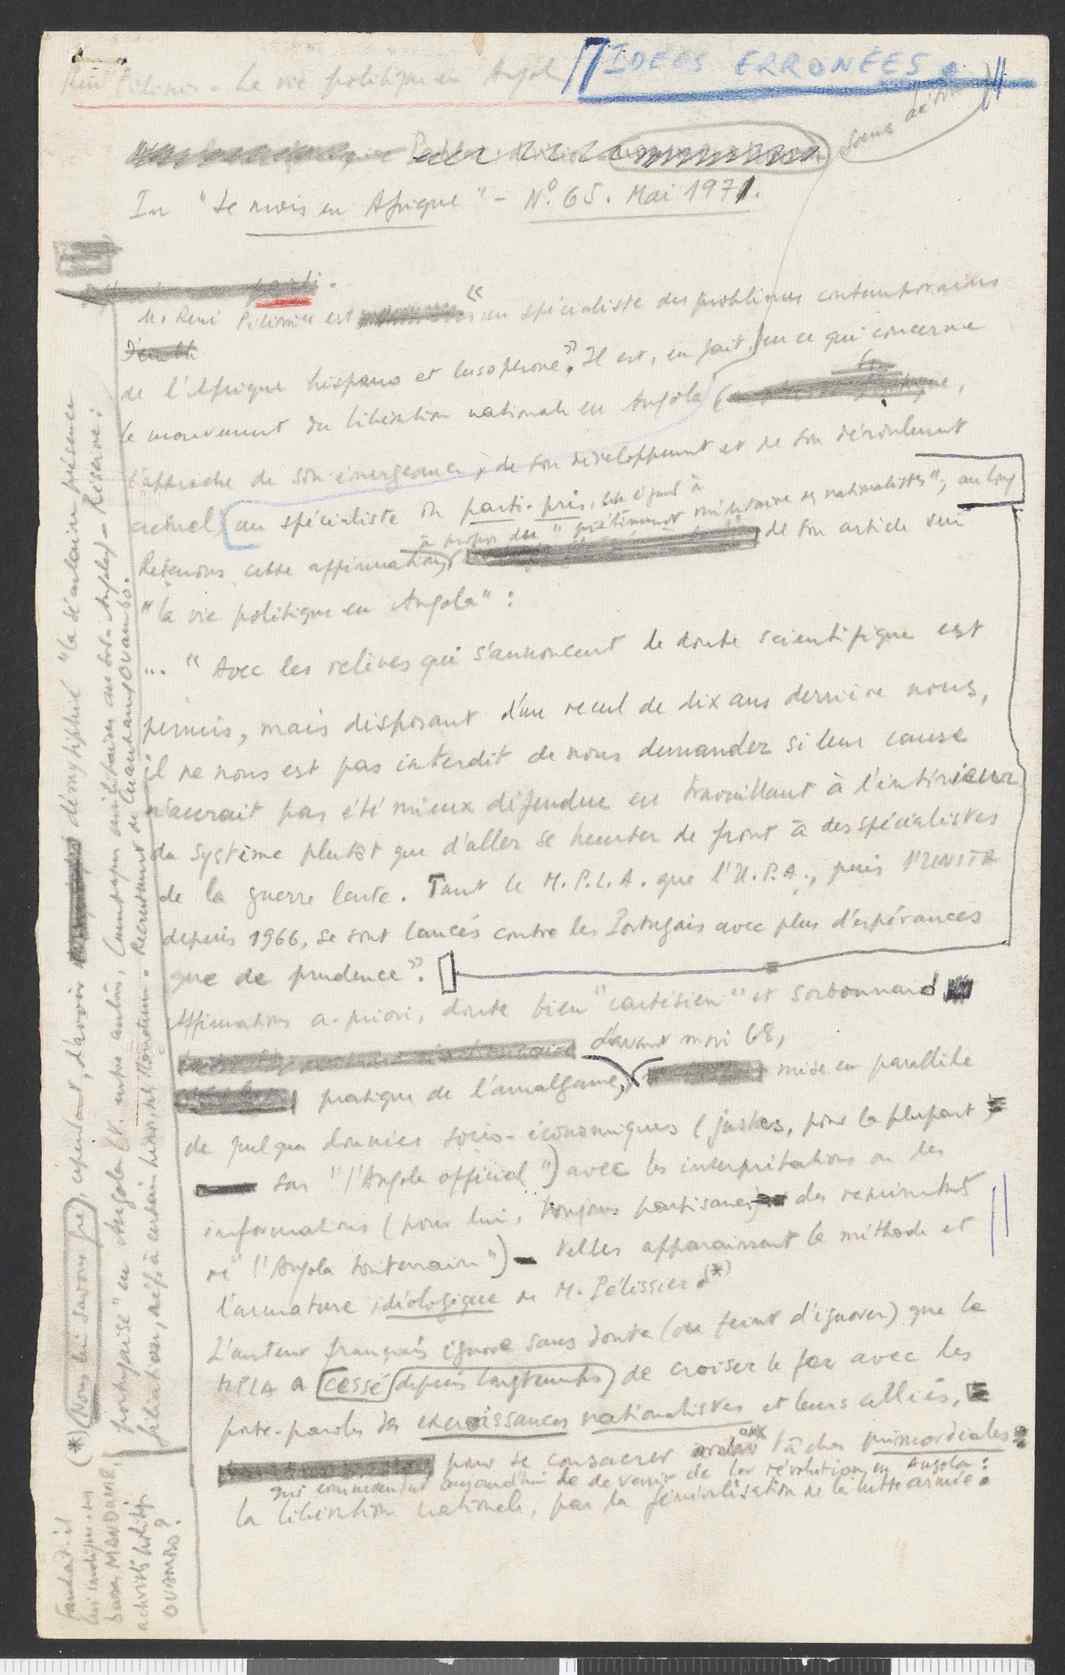 René Pélissier - La vie politique en Angol
IDÉES ERRONÉES.
sous
In "Le mois en Afrique" - Nº 65. Mai 1971.
M. René Pélissier est "un spécialiste des problèmes contemporains
de l'Afrique hispano et lusophone". Il est, en fait, en ce qui concerne
le mouvement de libération nationale en Angola,
l'approche de son émergence, de son développement et de son déroulement
actuel, un spécialiste du parti-pris.
Retenons cette affirmation, à propos du "piétinement militaire des nationalistes", au long de son article sur
"la vie politique en Angola" :
... "Avec les relèves qui s'annoncent le doute scientifique est
permis, mais disposant d'un recul de dix ans derrière nous,
il ne nous est pas interdit de nous demander si leur cause
n'aurait pas été mieux défendue en travaillant à l'intérieur
du système plutôt que d'aller se heurter de front à des spécialistes
de la guerre lente. Tant le M.P.L.A. que l'U.P.A., puis l'UNITA
depuis 1966, se sont lancés contre les Portugais avec plus d'espérances
que de prudence".
Affirmations a-priori, doute bien "cartésien" et sorbonnard
d'avant mai 68,
pratique de l'amalgame, mise en parallèle
de quelques données socio-économiques (justes, pour la plupart
son "l'Angola officiel") avec les interprétations ou les
informations (pour lui, toujours partisanes) des représentants
de "l'Angola souterrain") - telles apparaissent la méthode et
l'armature idéologique de M. Pélissier. (*)
L'auteur français ignore sans doute (ou feint d'ignorer) que le
MPLA a cessé (depuis longtemps) de croiser le fer avec les
porte-paroles des excroissances nationalistes et leurs alliés,
pour se consacrer aux tâches primordiales
qui commandent aujourd'hui le devenir de la révolution en Angola :
la libération nationale, par la généralisation de la lutte armée.
(*) Nous lui savons gré, cependant, d'avoir démystifié "la séculaire présence
portugaise" en Angola
OVAMBO?